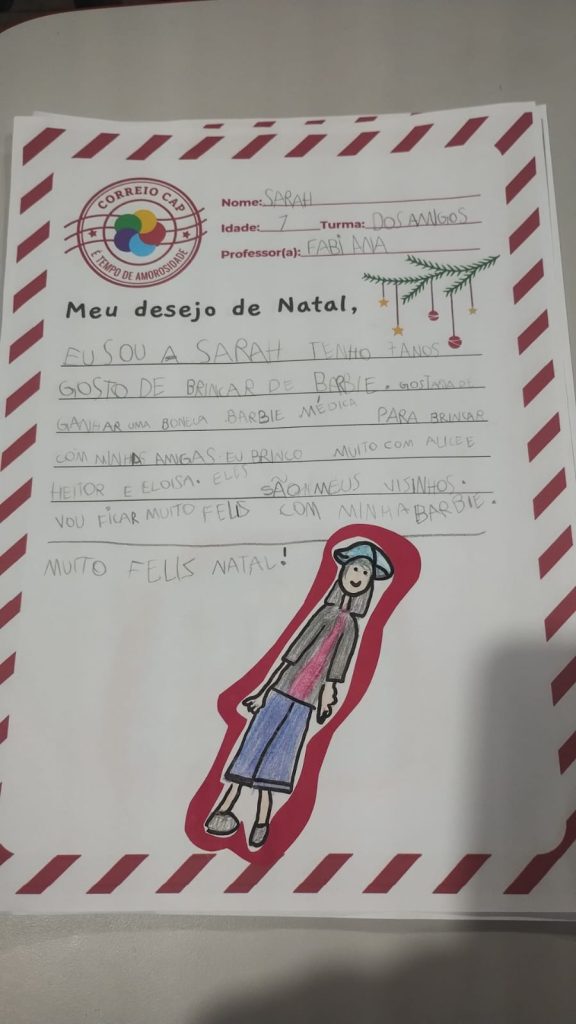 CORREIO CAP
É TEMPO DE AMOROSIDADE
Nome: SARAH
Idade: 7 Turma: DOS AMIGOS
Professor(a): FABIANA
Meu desejo de Natal,
EU SOU A SARAH TENHO 7 ANOS
GOSTO DE BRINCAR DE BARBIE. GOSTARIA DE
GANHAR UMA BONECA BARBIE MÉDICA PARA BRINCAR
COM MINHAS AMIGAS. EU BRINCO MUITO COM ALICE E
HEITOR E ELOISA. ELES SÃO MEUS VISINHOS.
VOU FICAR MUITO FELIS COM MINHA BARBIE.
MUITO FELIS NATAL!